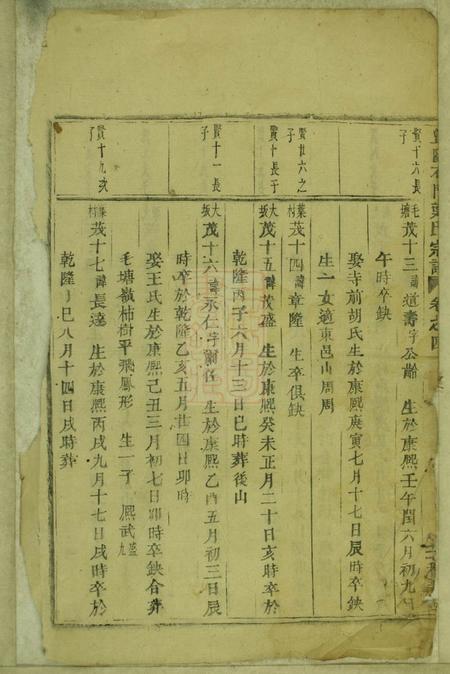 葉氏宗譜 卷之四
賢十六長子
毛塘茂十三諱道壽字公齡 生於康熙壬午閏六月初九日
午時卒缺
娶寺前胡氏生於康熙庚寅七月十七日辰時卒缺
生一女適東邑山周周
賢廿六之子
葉村茂十四諱章隆 生卒俱缺
賢十長子
大坂茂十五諱茂盛 生於康熙癸未正月二十日亥時卒於
乾隆丙子六月十三日巳時葬後山
賢十一長子
大坂茂十六諱永仁字 生於康熙乙酉五月初三日辰
時卒於乾隆乙亥五月廿四日卯時
娶王氏生於康熙己丑三月初七日卯時卒缺合葬
毛塘嶺柿樹平飛鳳形 生一子 熙武
賢十九次子
葉村茂十七諱長達 生於康熙丙戌九月十七日戌時卒於
乾隆丁巳八月十四日戌時葬